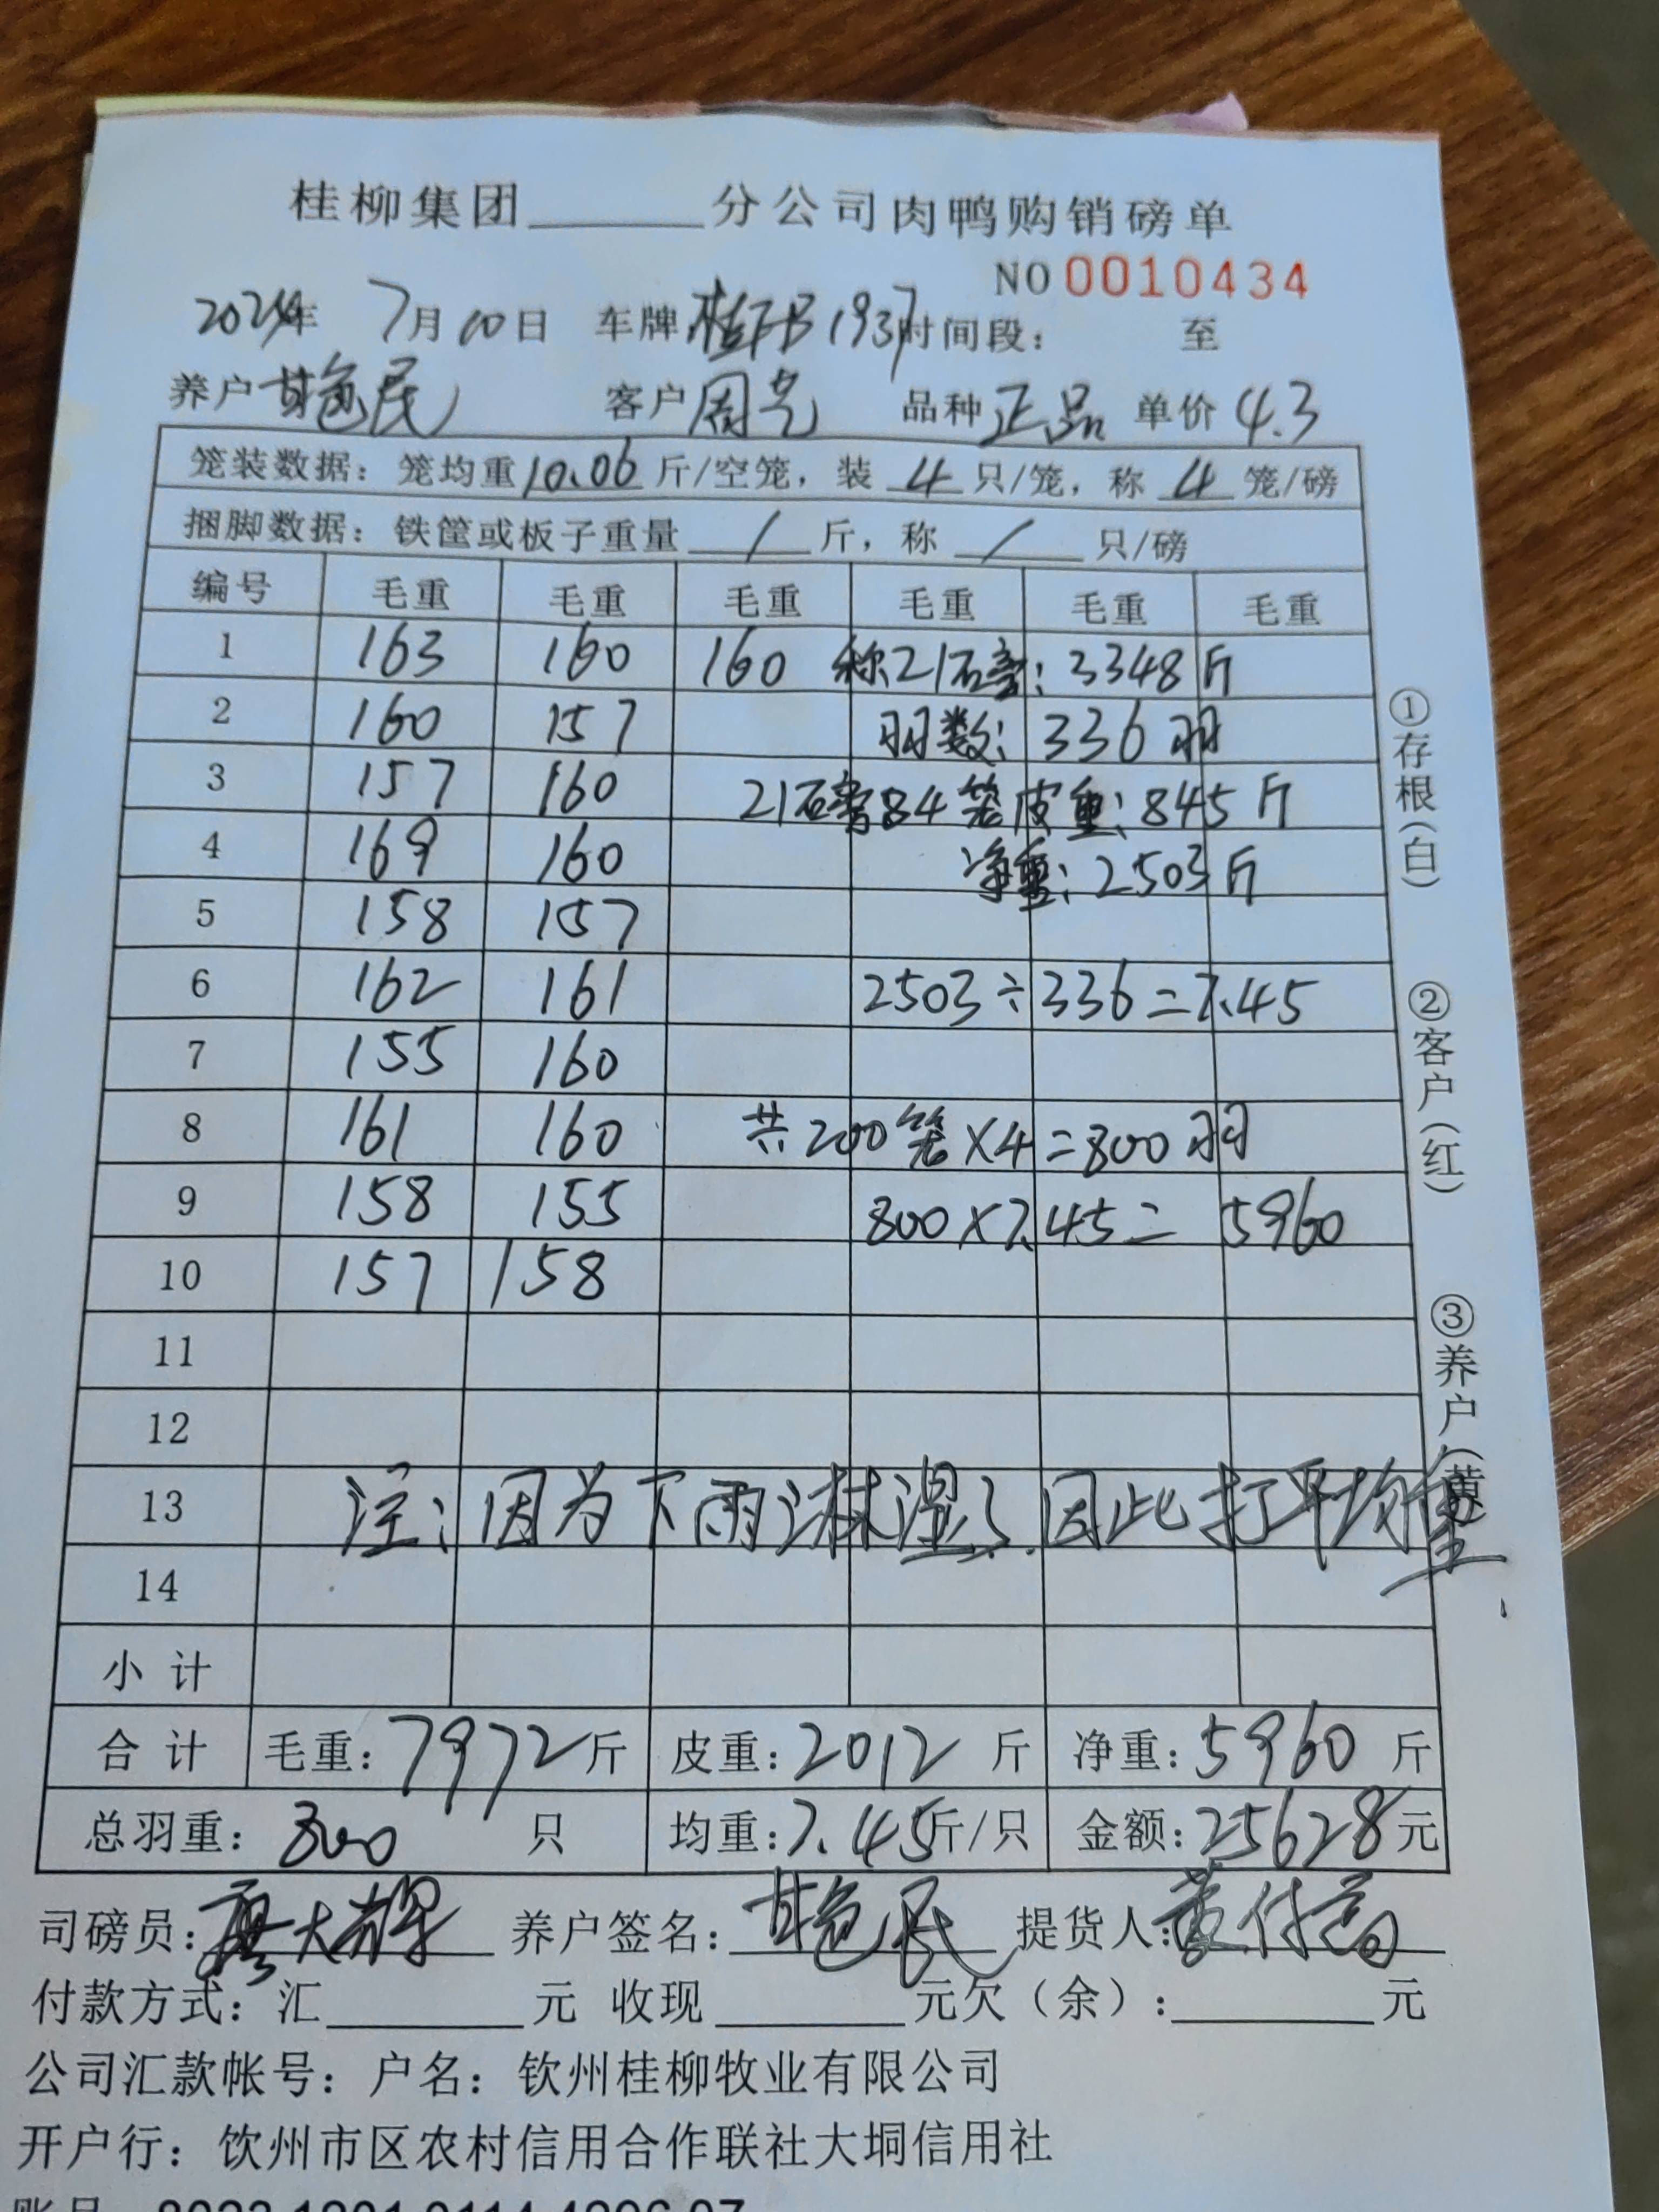 桂柳集团______分公司肉鸭购销磅单
NO 0010434
2024年 7月10日 车牌 桂F 1937 时间段: 至
养户 甘色民 客户 周 品种 正品 单价 4.3
笼装数据: 笼均重10.06斤/空笼, 装 4 只/笼, 称 4 笼/磅
捆脚数据: 铁筐或板子重量 / 斤, 称 / 只/磅
编号 毛重 毛重 毛重 毛重 毛重 毛重
1 163 160 160 称21磅: 3348斤
2 160 157 羽数: 336羽
3 157 160 21磅84笼皮重: 845斤
4 169 160 净重: 2503斤
5 158 157
6 162 161 2503÷336=7.45
7 155 160
8 161 160 共200笼×4=800羽
9 158 155 800×7.45=5960
10 157 158
11
12
13 注: 因为下雨淋湿了.因此打平均重
14
小计
合计 毛重: 7972斤 皮重: 2012斤 净重: 5960斤
总羽重: 800 只 均重: 7.45斤/只 金额: 25628元
司磅员: 大辉 养户签名: 甘色民 提货人: 黄付高
付款方式: 汇______元 收现______元欠(余):______元
公司汇款帐号: 户名: 钦州桂柳牧业有限公司
开户行: 饮州市区农村信用合作联社大垌信用社
①存根(白)
②客户(红)
③养户(黄)